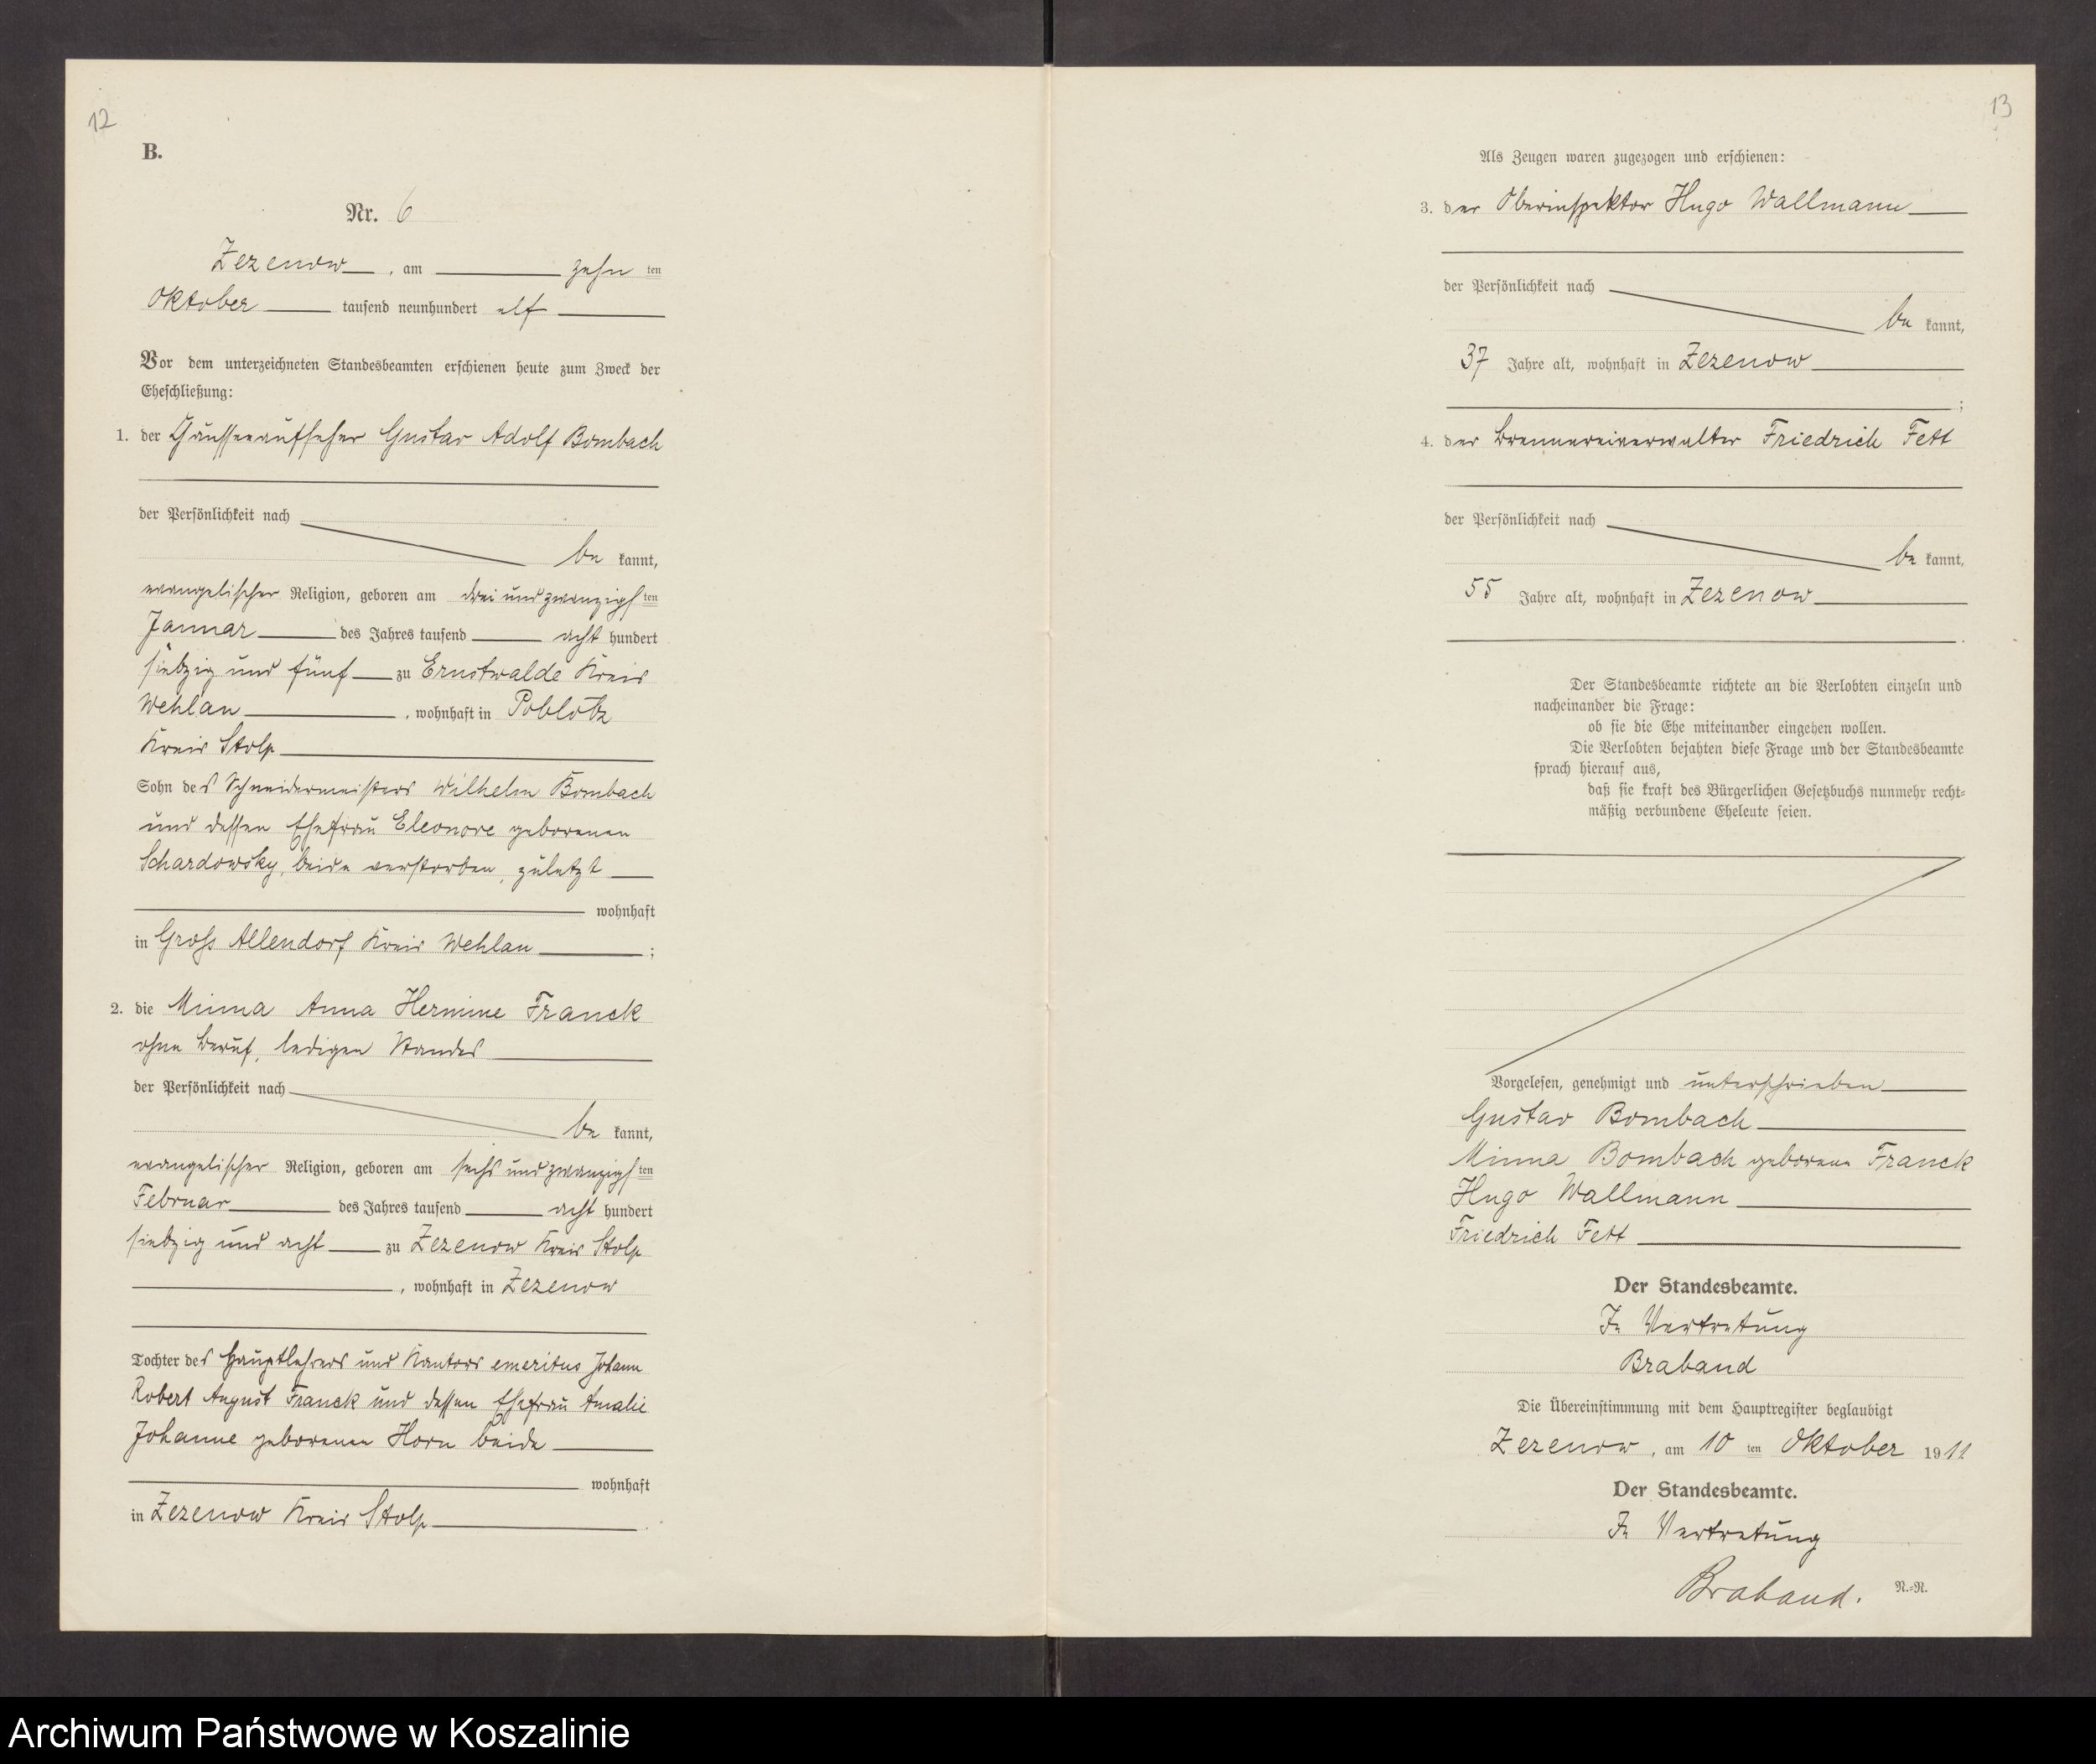 12
B.
Nr. 6
Zezenow, am zehn ten
Oktober tausend neunhundert elf
Vor dem unterzeichneten Standesbeamten erschienen heute zum Zweck der
Eheschließung:
1. der Chausseeaufseher Gustav Adolf Bombach
der Persönlichkeit nach
be kannt,
evangelischer Religion, geboren am dreiundzwanzigs ten
Januar des Jahres tausend acht hundert
siebzig und fünf zu Ernstwalde Kreis
Wehlau, wohnhaft in Poblotz
Kreis Stolp
Sohn des Schneidermeisters Wilhelm Bombach
und dessen Ehefrau Eleonore geborenen
Schardowsky, beide verstorben, zuletzt
wohnhaft
in Gross Allendorf Kreis Wehlau;
2. die Minna Anna Hermine Franck
ohne Beruf, ledigen Standes
der Persönlichkeit nach
be kannt,
evangelischer Religion, geboren am sechsundzwanzigs ten
Februar des Jahres tausend acht hundert
siebzig und acht zu Zezenow Kreis Stolp
, wohnhaft in Zezenow
Tochter des Hauptlehrers und Kantors emeritus Johann
Robert August Franck und dessen Ehefrau Amalie
Johanne geborenen Horn beide
wohnhaft
in Zezenow Kreis Stolp.
13
Als Zeugen waren zugezogen und erschienen:
3. der Oberinspektor Hugo Wallmann
der Persönlichkeit nach
be kannt,
37 Jahre alt, wohnhaft in Zezenow
;
4. der Brennereiverwalter Friedrich Fett
der Persönlichkeit nach
be kannt,
55 Jahre alt, wohnhaft in Zezenow
.
Der Standesbeamte richtete an die Verlobten einzeln und
nacheinander die Frage:
ob sie die Ehe miteinander eingehen wollen.
Die Verlobten bejahten diese Frage und der Standesbeamte
sprach hierauf aus,
daß sie kraft des Bürgerlichen Gesetzbuchs nunmehr recht-
mäßig verbundene Eheleute seien.
Vorgelesen, genehmigt und unterschrieben
Gustav Bombach
Minna Bombach geborene Franck
Hugo Wallmann
Friedrich Fett
Der Standesbeamte.
In Vertretung
Braband
Die Übereinstimmung mit dem Hauptregister beglaubigt
Zezenow, am 10 ten Oktober 1911
Der Standesbeamte.
In Vertretung
Braband.
N.-R.
Archiwum Państwowe w Koszalinie